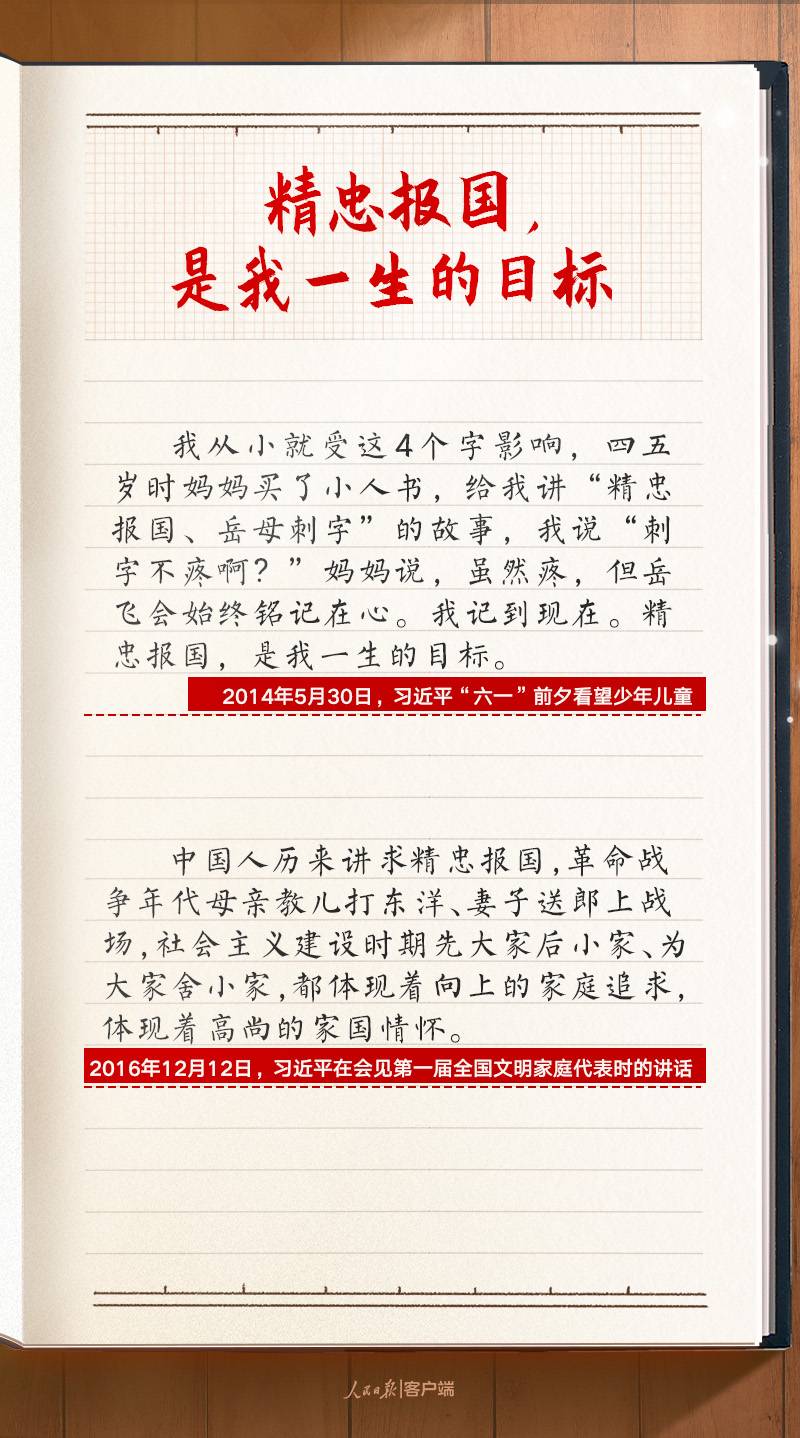 精忠报国，
是我一生的目标
我从小就受这4个字影响，四五
岁时妈妈买了小人书，给我讲“精忠
报国、岳母刺字”的故事，我说“刺
字不疼啊？”妈妈说，虽然疼，但岳
飞会始终铭记在心。我记到现在。精
忠报国，是我一生的目标。
2014年5月30日，习近平“六一”前夕看望少年儿童
中国人历来讲求精忠报国，革命战
争年代母亲教儿打东洋、妻子送郎上战
场，社会主义建设时期先大家后小家、为
大家舍小家，都体现着向上的家庭追求，
体现着高尚的家国情怀。
2016年12月12日，习近平在会见第一届全国文明家庭代表时的讲话
人民日报|客户端